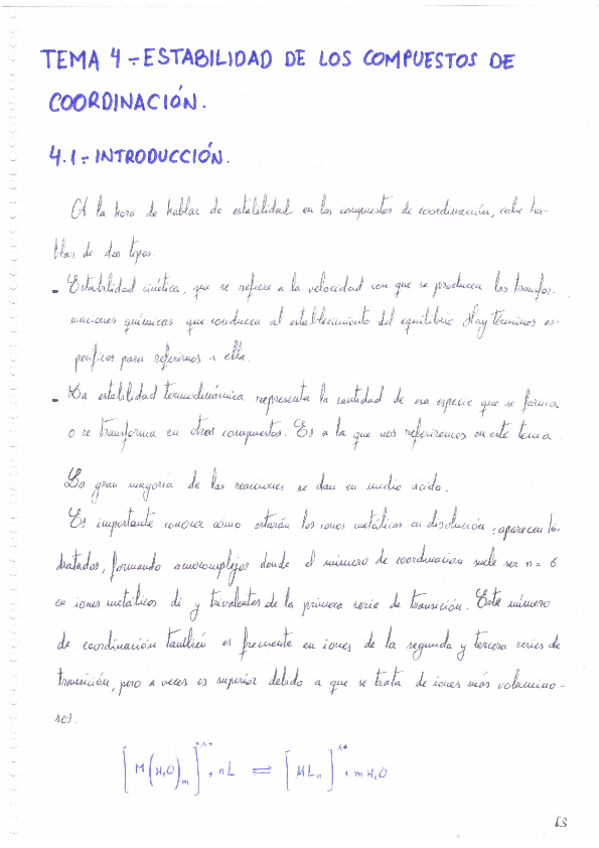 TEMA 4.- ESTABILIDAD DE LOS COMPUESTOS DE
COORDINACIÓN.
4.1.- INTRODUCCIÓN.
A la hora de hablar de estabilidad en los compuestos de coordinación, cabe ha-
blar de dos tipos.
- Estabilidad cinética, que se refiere a la velocidad con que se producen las transfor-
maciones químicas que conducen al establecimiento del equilibrio. Hay términos es-
pecíficos para referirnos a ella.
- La estabilidad termodinámica representa la cantidad de esa especie que se forma
o se transforma en otros compuestos. Es a la que nos referiremos en este tema.
La gran mayoría de las reacciones se dan en medio acido.
Es importante conocer cómo estarán los iones metálicos en disolución: aparecen hi-
dratados, formando acuocomplejos donde el número de coordinación suele ser n = 6
en iones metálicos di y trivalentes de la primera serie de transición. Este número
de coordinación también es frecuente en iones de la segunda y tercera series de
transición, pero a veces es superior debido a que se trata de iones más volumino-
sos.
[M(H₂O)ₘ]ˣ⁺ + nL ⇌ [MLₙ]ˣ⁺ + mH₂O
63